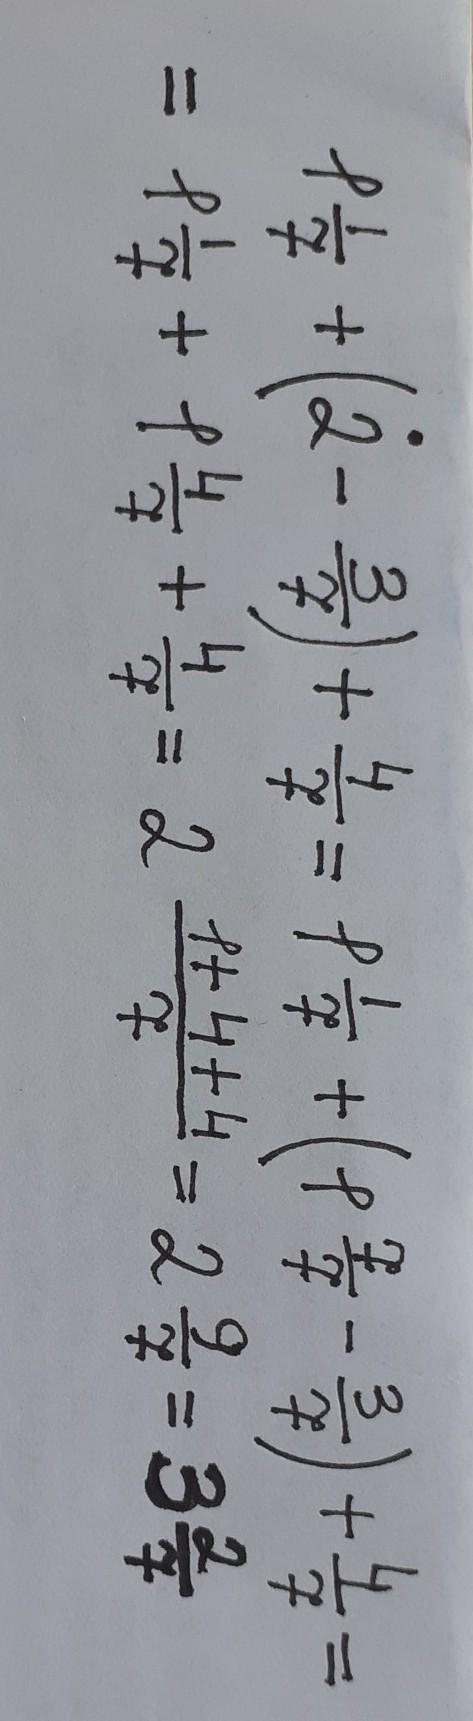 1 1/7 + (2 - 3/7) + 4/7 = 1 1/7 + (1 7/7 - 3/7) + 4/7 =
= 1 1/7 + 1 4/7 + 4/7 = 2 (1+4+4)/7 = 2 9/7 = 3 2/7